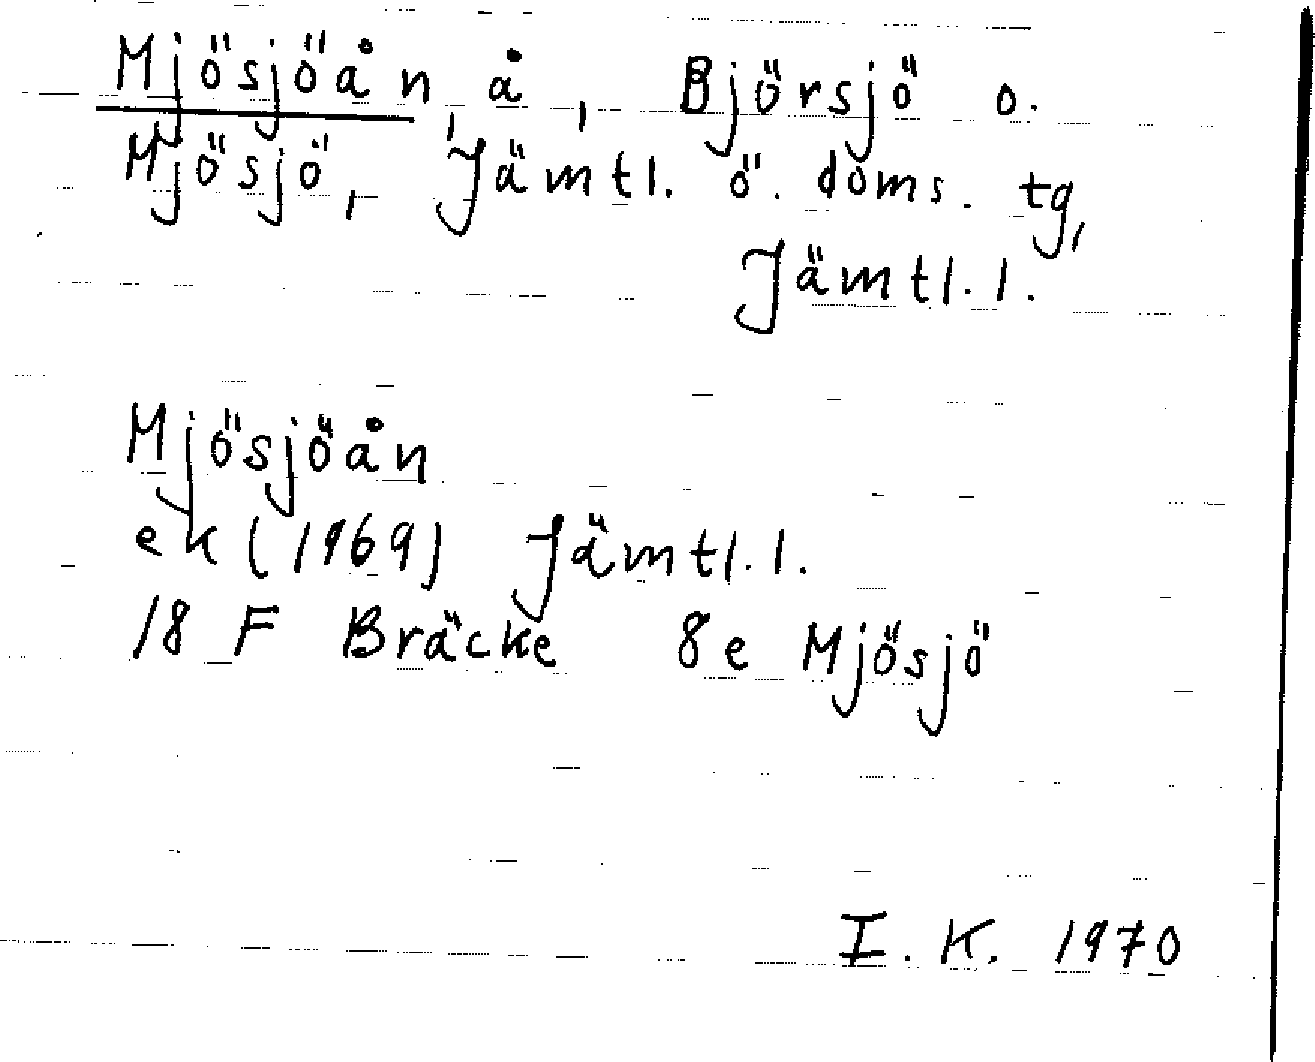 Mjösjöån, å, Björsjö o.
Mjösjö, Jämtl. ö. doms. tg,
Jämtl. l.
Mjösjöån
ek (1969) Jämtl. l.
18 F Bräcke 8e Mjösjö
I. K. 1970